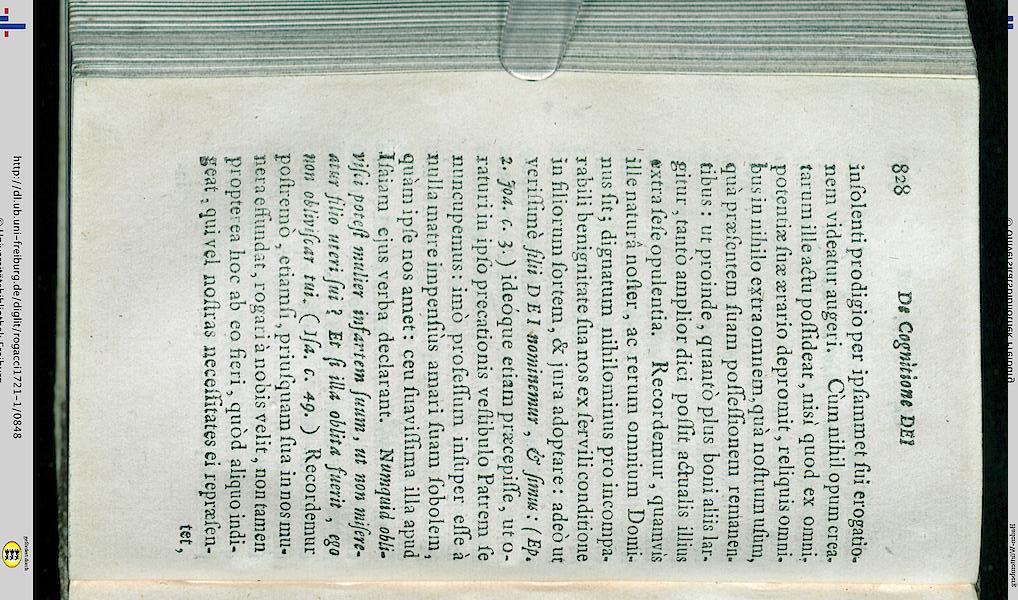 828 De Cognitione DEI
insolenti prodigio per ipsammet sui erogatio-
nem videatur augeri. Cùm nihil opum crea-
tarum ille actu possideat, nisi quod ex omni-
potentiæ suæ ærario depromit, reliquis omni-
bus in nihilo extra omnem, qua nostrum usum,
qua præsentem suam possessionem remanen-
tibus: ut proinde, quantò plus boni aliis lar-
gitur, tanto amplior dici possit actualis illius
extra sese opulentia. Recordemur, quamvis
ille naturâ noster, ac rerum omnium Domi-
nus sit; dignatum nihilominus pro incompa-
rabili benignitate sua nos ex servili conditione
in filiorum sortem, & jura adoptare: adeò ut
verissimè filii DEI nominemur, & simus: (Ep.
2. Joa. c. 3.) ideóque etiam præcepisse, ut o-
raturi in ipso precationis vestibulo Patrem se
nuncupemus: imò professum insuper esse à
nulla matre impensiùs amari suam sobolem,
quàm ipse nos amet: ceu suavissima illa apud
Isaiam ejus verba declarant. Numquid obli-
visci potest mulier infantem suum, ut non misere-
atur filio uteri sui? Et si illa oblita fuerit, ego
non obliviscar tui. (Isa, c. 49.) Recordemur
postremo, etiamsi, priusquam sua in nos mu-
nera effundat, rogari à nobis velit, non tamen
propterea hoc ab eo fieri, quòd aliquo indi-
geat, qui vel nostras necessitates ei repræsen-
tet,
http://dl.ub.uni-freiburg.de/diglit/rogacci1721-1/0848
© Universitätsbibliothek Freiburg
gefördert durch